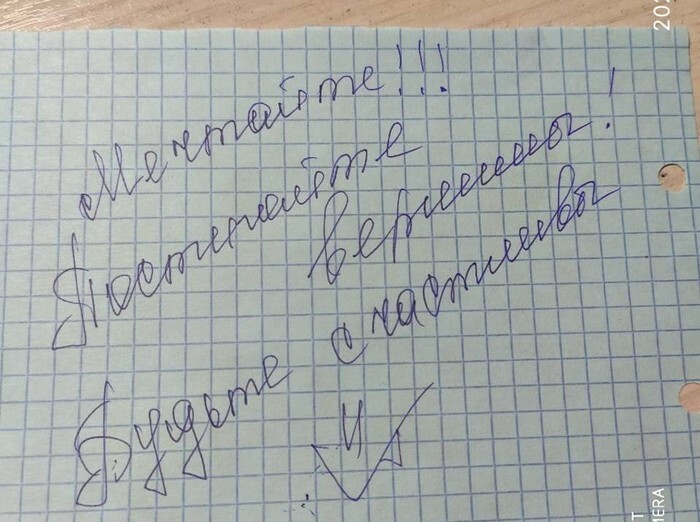 Мечтайте!!!
Постигайте
вершины!
Будьте счастливы